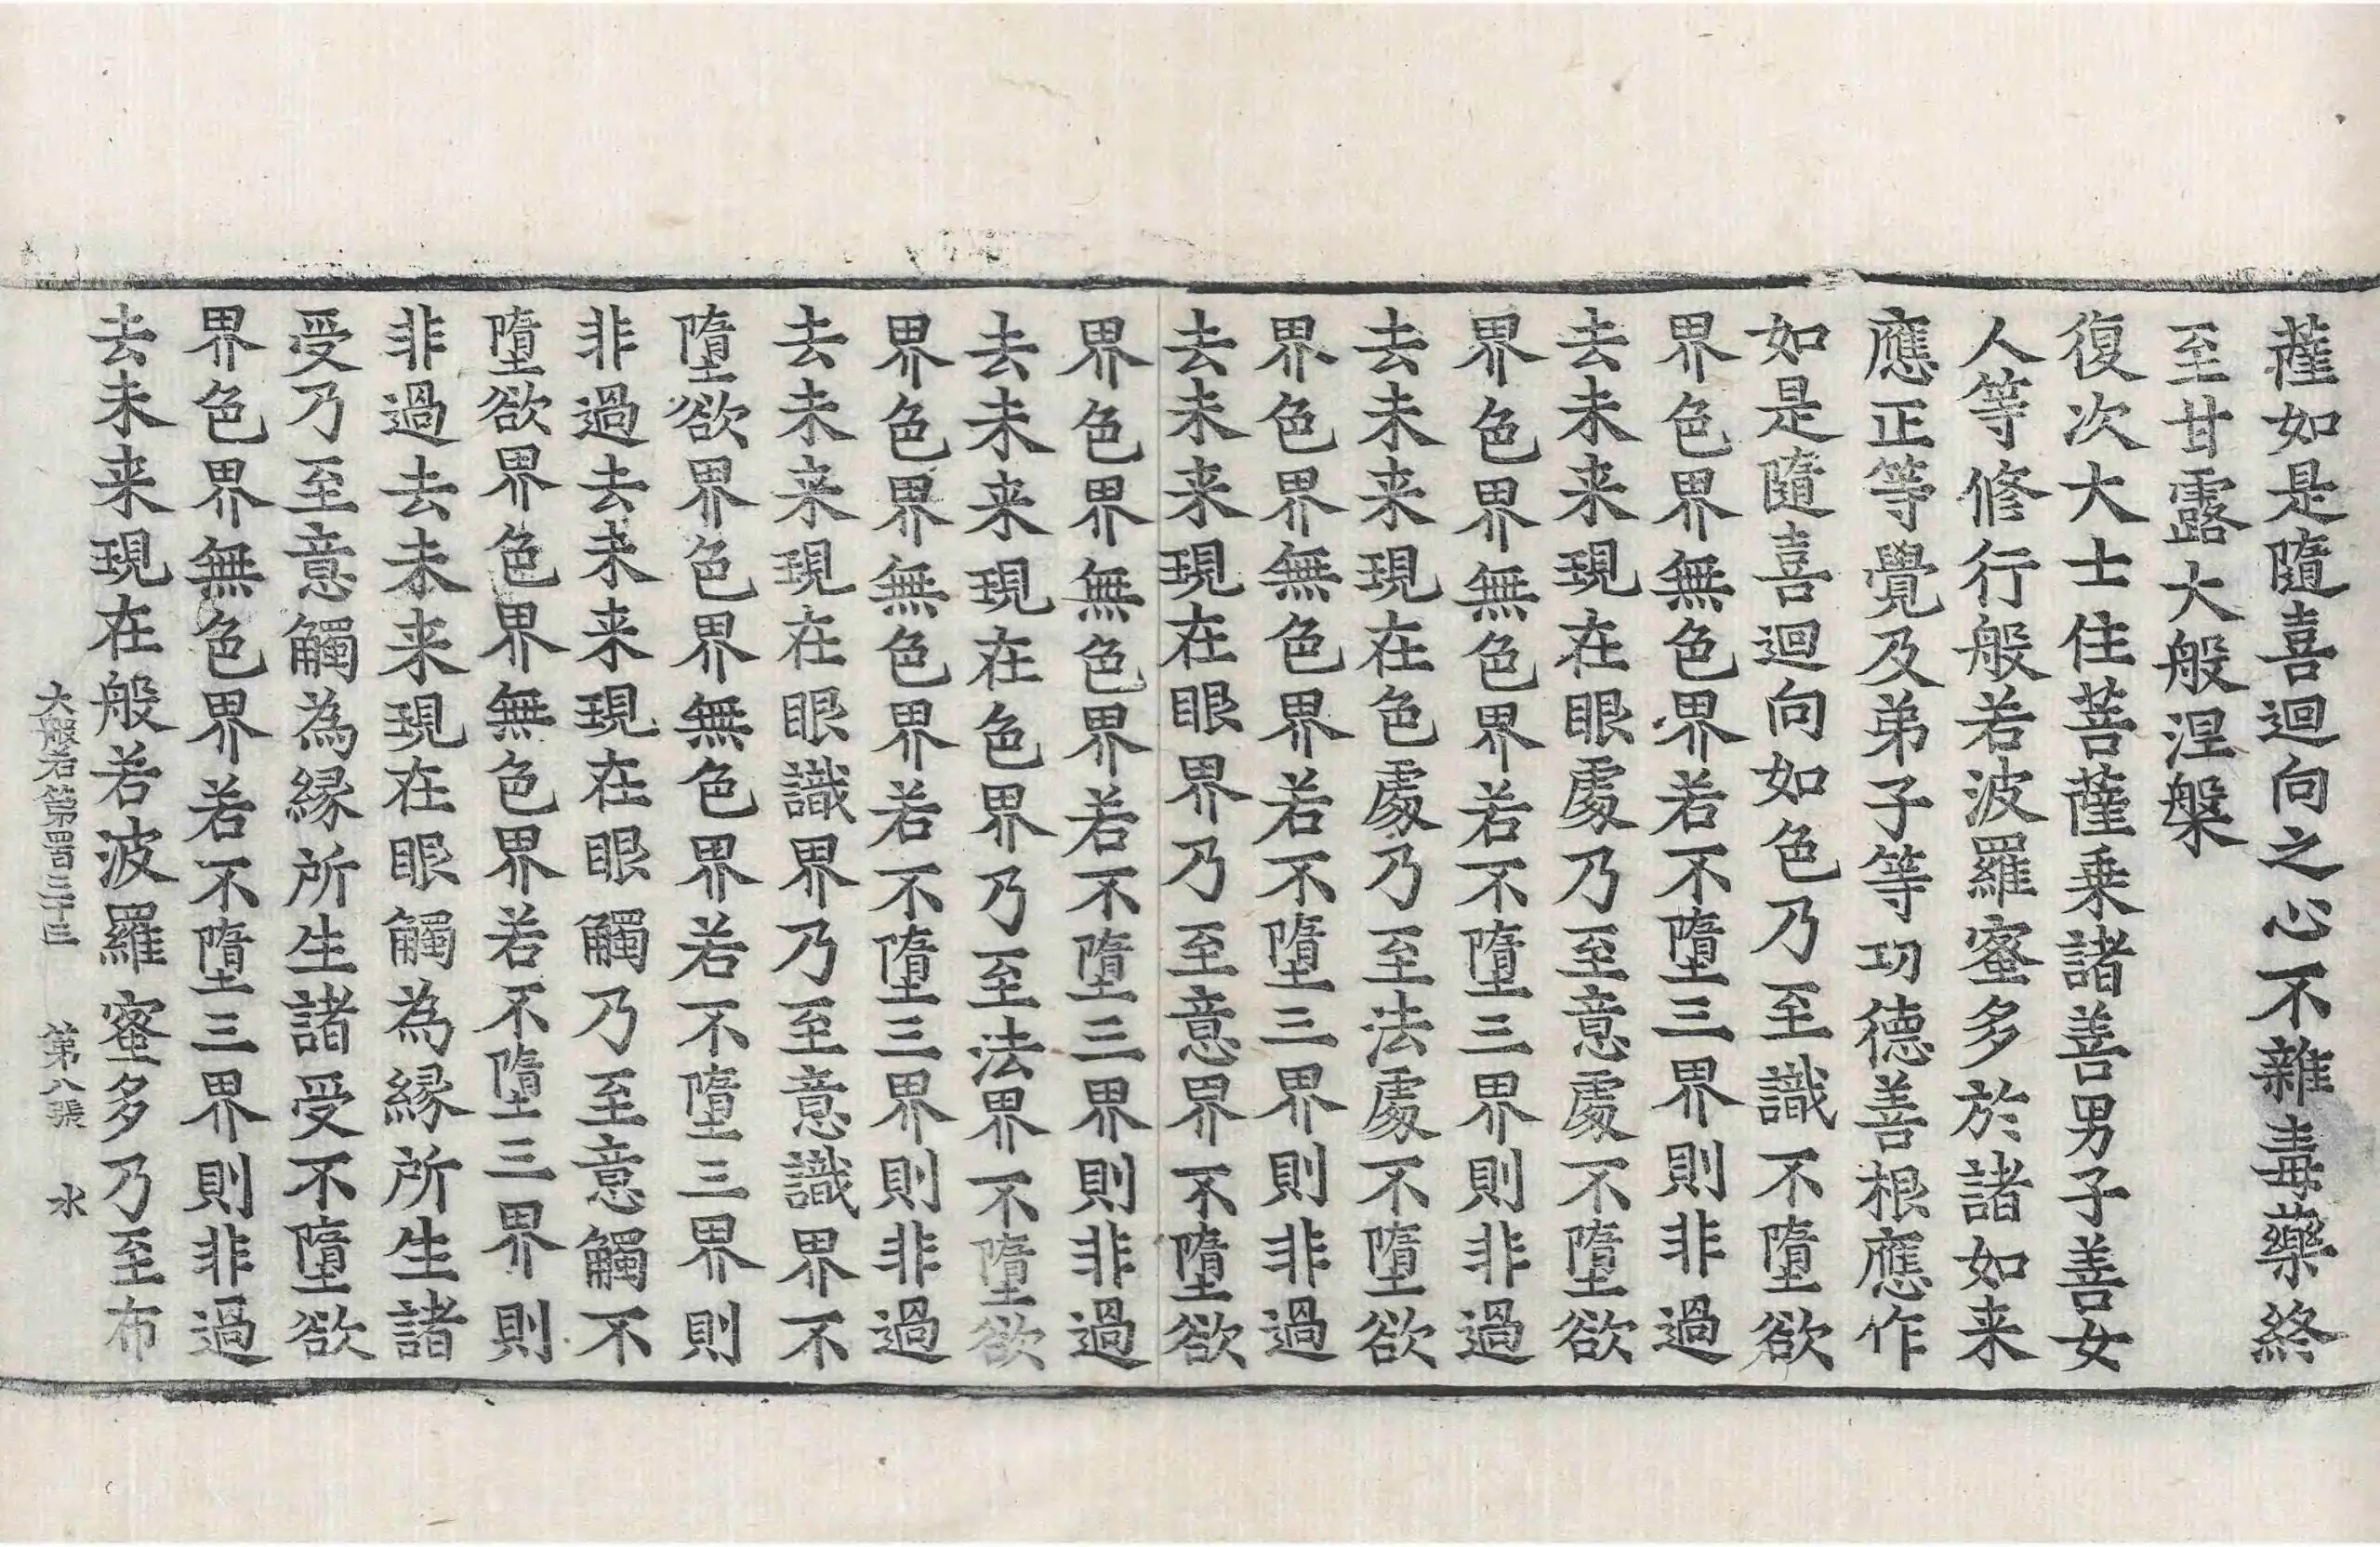 薩如是隨喜迴向之心不雜毒藥終
至甘露大般涅槃
復次大士住菩薩乗諸善男子善女
人等修行般若波羅蜜多於諸如来
應正等覺及弟子等功德善根應作
如是隨喜迴向如色乃至識不墮欲
界色界無色界若不墮三界則非過
去未来現在眼處乃至意處不墮欲
界色界無色界若不墮三界則非過
去未来現在色處乃至法處不墮欲
界色界無色界若不墮三界則非過
去未来現在眼界乃至意界不墮欲
界色界無色界若不墮三界則非過
去未来現在色界乃至法界不墮欲
界色界無色界若不墮三界則非過
去未来現在眼識界乃至意識界不
墮欲界色界無色界若不墮三界則
非過去未来現在眼觸乃至意觸不
墮欲界色界無色界若不墮三界則
非過去未来現在眼觸為縁所生諸
受乃至意觸為縁所生諸受不墮欲
界色界無色界若不墮三界則非過
去未来現在般若波羅蜜多乃至布
大般若第四百三十三 第八張 水